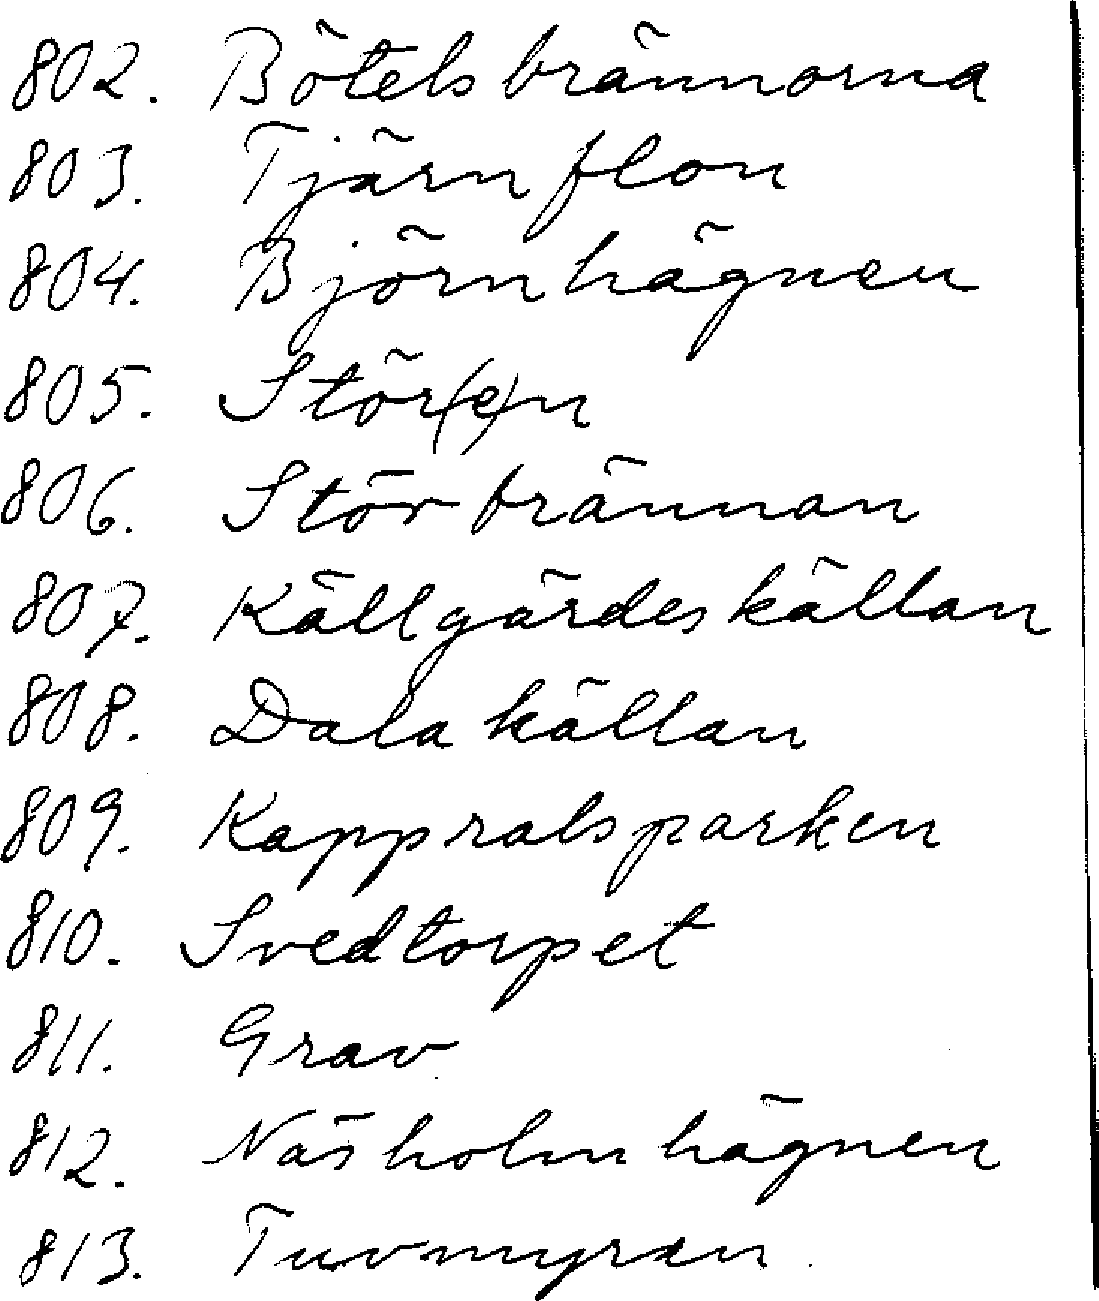 802. Bötelsbrännorna
803. Tjärnflon
804. Björnhägnen
805. Stör(e)n
806. Störbrännan
807. Källgärdeskällan
808. Dalakällan
809. Kappralsparken
810. Svedtorpet
811. Grav
812. Näsholmhägnen
813. Tuvmyran